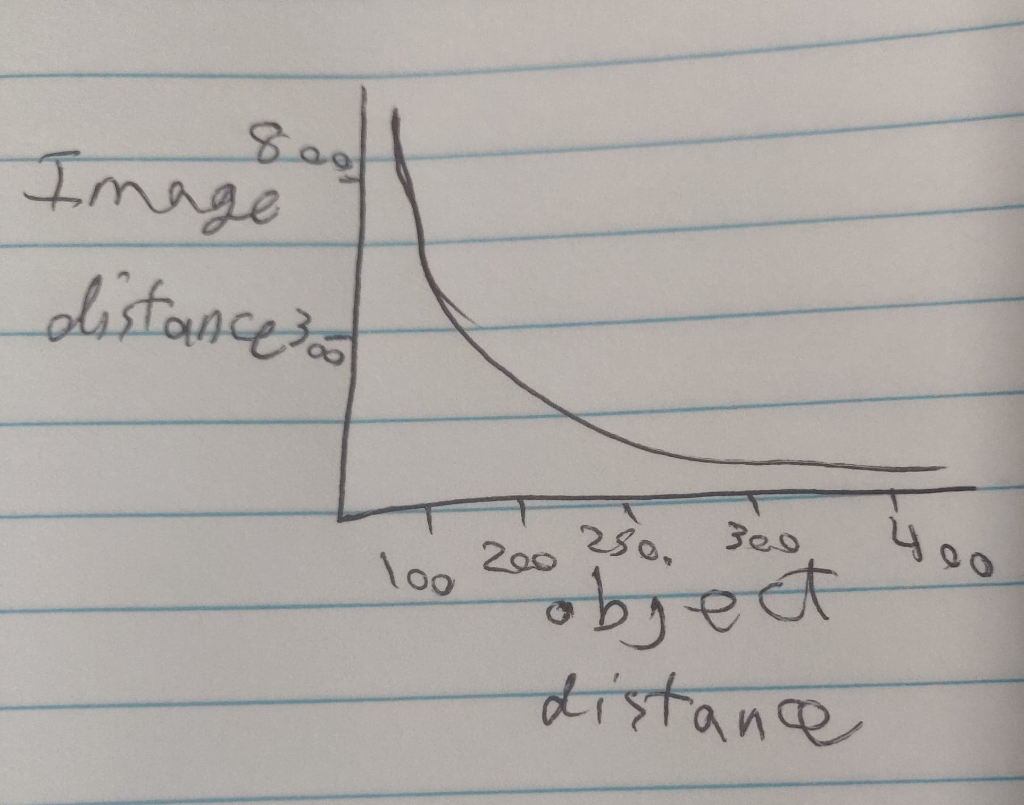 800
Image
distance
300
100 200 250. 300 400
object
distance